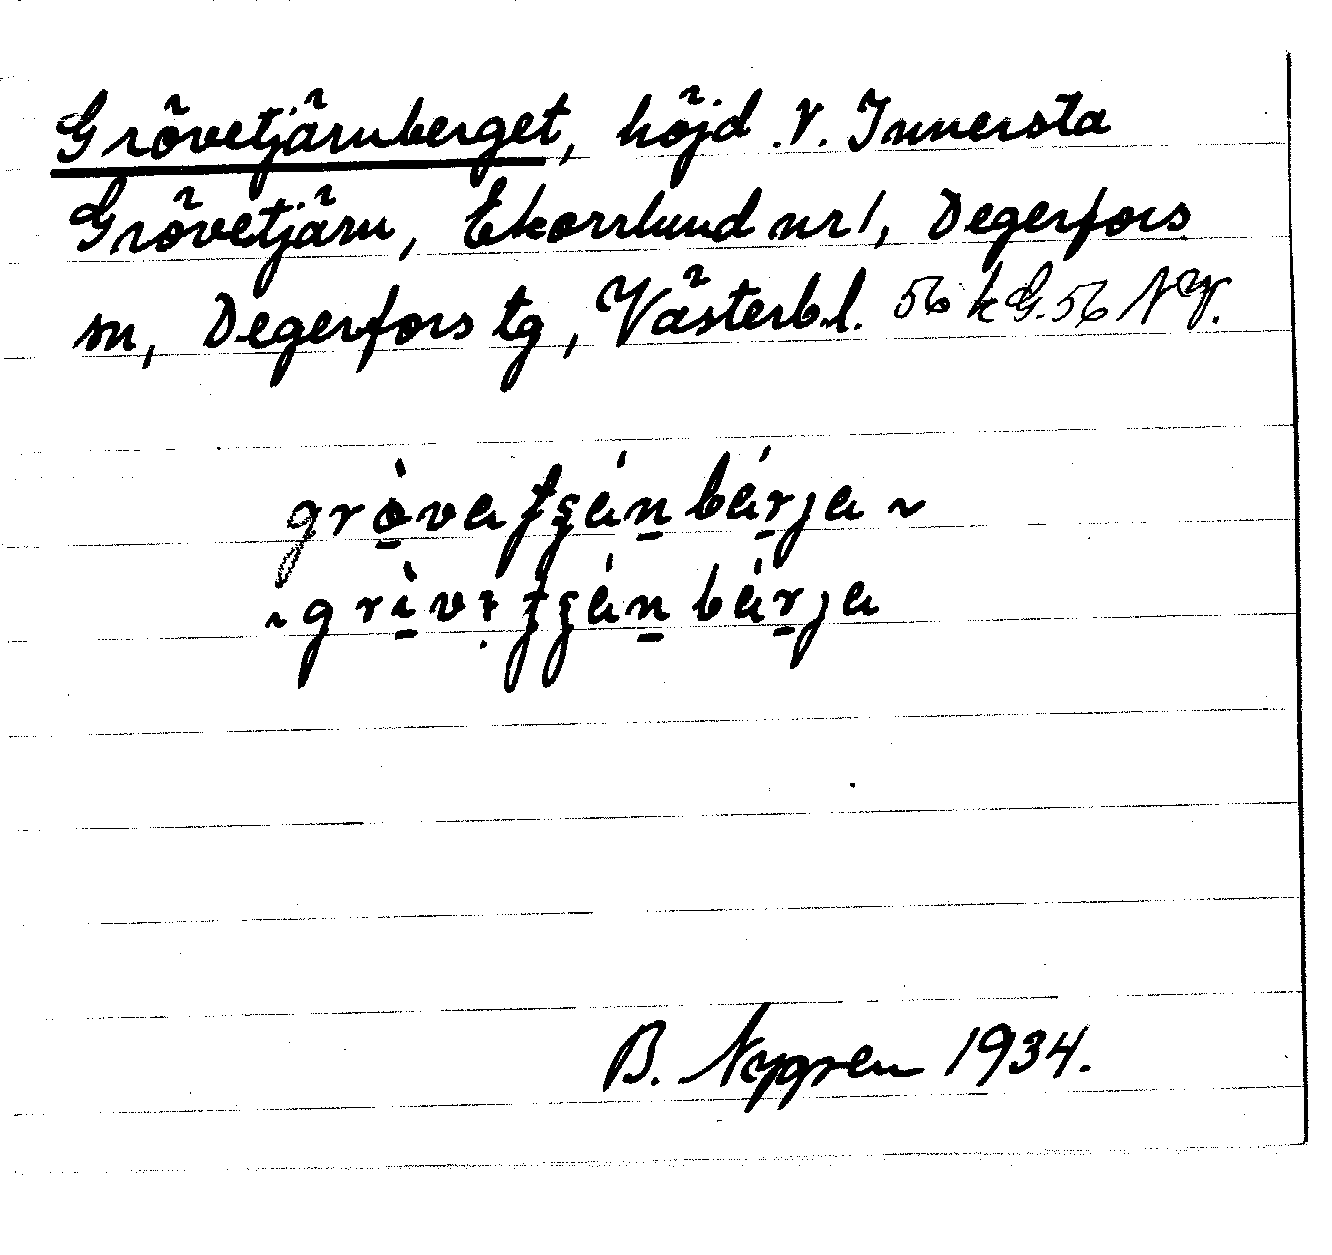 Grövetjärnberget, höjd V. Innersta
Grövetjärn, Ekorrlund nr 1, Degerfors
sn, Degerfors tg, Västerb.l. 56 k G. 56 NV.
B. Nygren 1934.